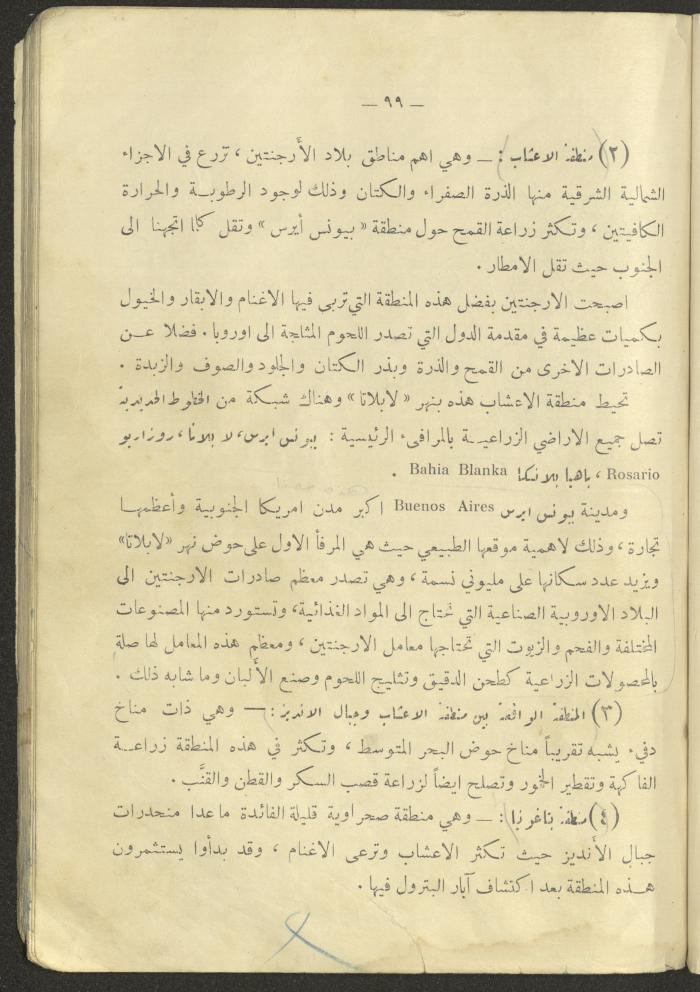 — ٩٩ —
(٢) منطقة الاعشاب : — وهي اهم مناطق بلاد الأرجنتين ، تزرع في الاجزاء
الشمالية الشرقية منها الذرة الصفراء والكتان وذلك لوجود الرطوبة والحرارة
الكافيتين ، وتكثر زراعة القمح حول منطقة « بيونس أيرس » وتقل كلما اتجهنا الى
الجنوب حيث تقل الامطار .
اصبحت الارجنتين بفضل هذه المنطقة التي تربى فيها الاغنام والابقار والخيول
بكميات عظيمة في مقدمة الدول التي تصدر اللحوم المثلجة الى اوروبا . فضلا عن
الصادرات الاخرى من القمح والذرة وبذر الكتان والجلود والصوف والزبدة .
تحيط منطقة الاعشاب هذه بنهر « لابلاتا » وهناك شبكة من الخطوط الحديدية
تصل جميع الاراضي الزراعية بالمرافىء الرئيسية : بيونس ايرس، لا بلاتا ، روزاريو
Rosario ، باهيا بلانكا Bahia Blanka .
ومدينة بيونس ايرس Buenos Aires اكبر مدن امريكا الجنوبية وأعظمها
تجارة ، وذلك لاهمية موقعها الطبيعي حيث هي المرفأ الاول على حوض نهر «لابلاتا»
ويزيد عدد سكانها على مليوني نسمة ، وهي تصدر معظم صادرات الارجنتين الى
البلاد الاوروبية الصناعية التي تحتاج الى المواد الغذائية، وتستورد منها المصنوعات
المختلفة والفحم والزيوت التي تحتاجها معامل الارجنتين ، ومعظم هذه المعامل لها صلة
بالمحصولات الزراعية كطحن الدقيق وتثليج اللحوم وصنع الألبان وما شابه ذلك .
(٣) المنطقة الواقعة بين منطقة الاعشاب وجبال الانديز : — وهي ذات مناخ
دفيء يشبه تقريباً مناخ حوض البحر المتوسط ، وتكثر في هذه المنطقة زراعة
الفاكهة وتقطير الخمور وتصلح ايضاً لزراعة قصب السكر والقطن والقنَّب .
(٤) منطقة بتاغونيا : — وهي منطقة صحراوية قليلة الفائدة ما عدا منحدرات
جبال الأنديز حيث تكثر الاعشاب وترعى الاغنام ، وقد بدأوا يستثمرون
هذه المنطقة بعد اكتشاف آبار البترول فيها .